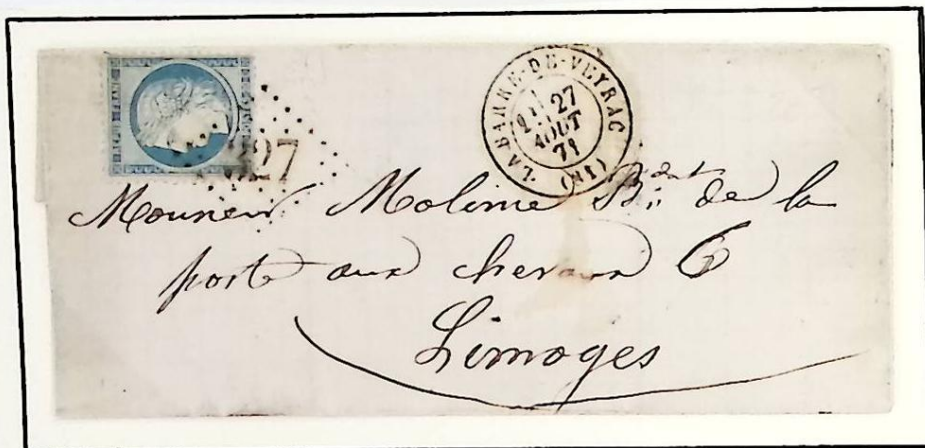 LA BARRE-DE-VEYRAC
27
AOUT
71
(81)
327
Monsieur Molinie B.dant de la
porte aux chevaux 6
Limoges